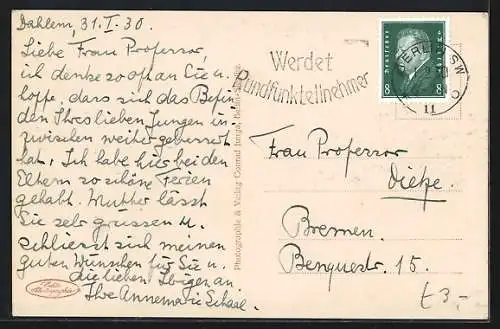 Dahlem, 31.I.30.
Liebe Frau Professor,
ich denke so oft an Sie u.
hoffe, dass sich das Befin
den Ihres lieben Jungen in
zwischen weiter gebessert
hat. Ich habe hier bei den
Eltern so schöne Ferien
gehabt. Mutter lässt
Sie sehr grüssen u.
schliesst sich meinen
guten Wünschen für Sie u.
die lieben Ihrigen an.
Ihre Annemarie Schaal.
Photographie & Verlag Conrad
Werdet
Rundfunkteilnehmer
BERLIN SW
11
Deutsches Reich
8 8
Frau Professor
Dietze.
Bremen.
Benquestr. 15.
£3-